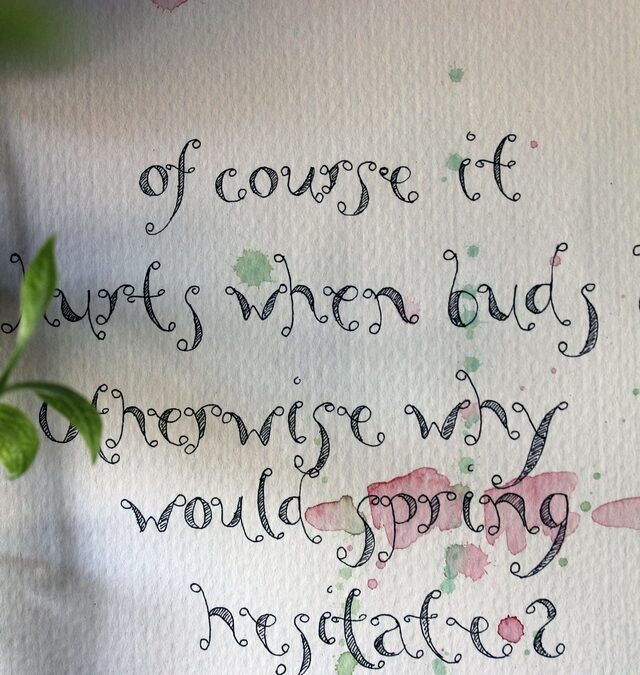 of course it
hurts when buds
otherwise why
would spring
hesitate?